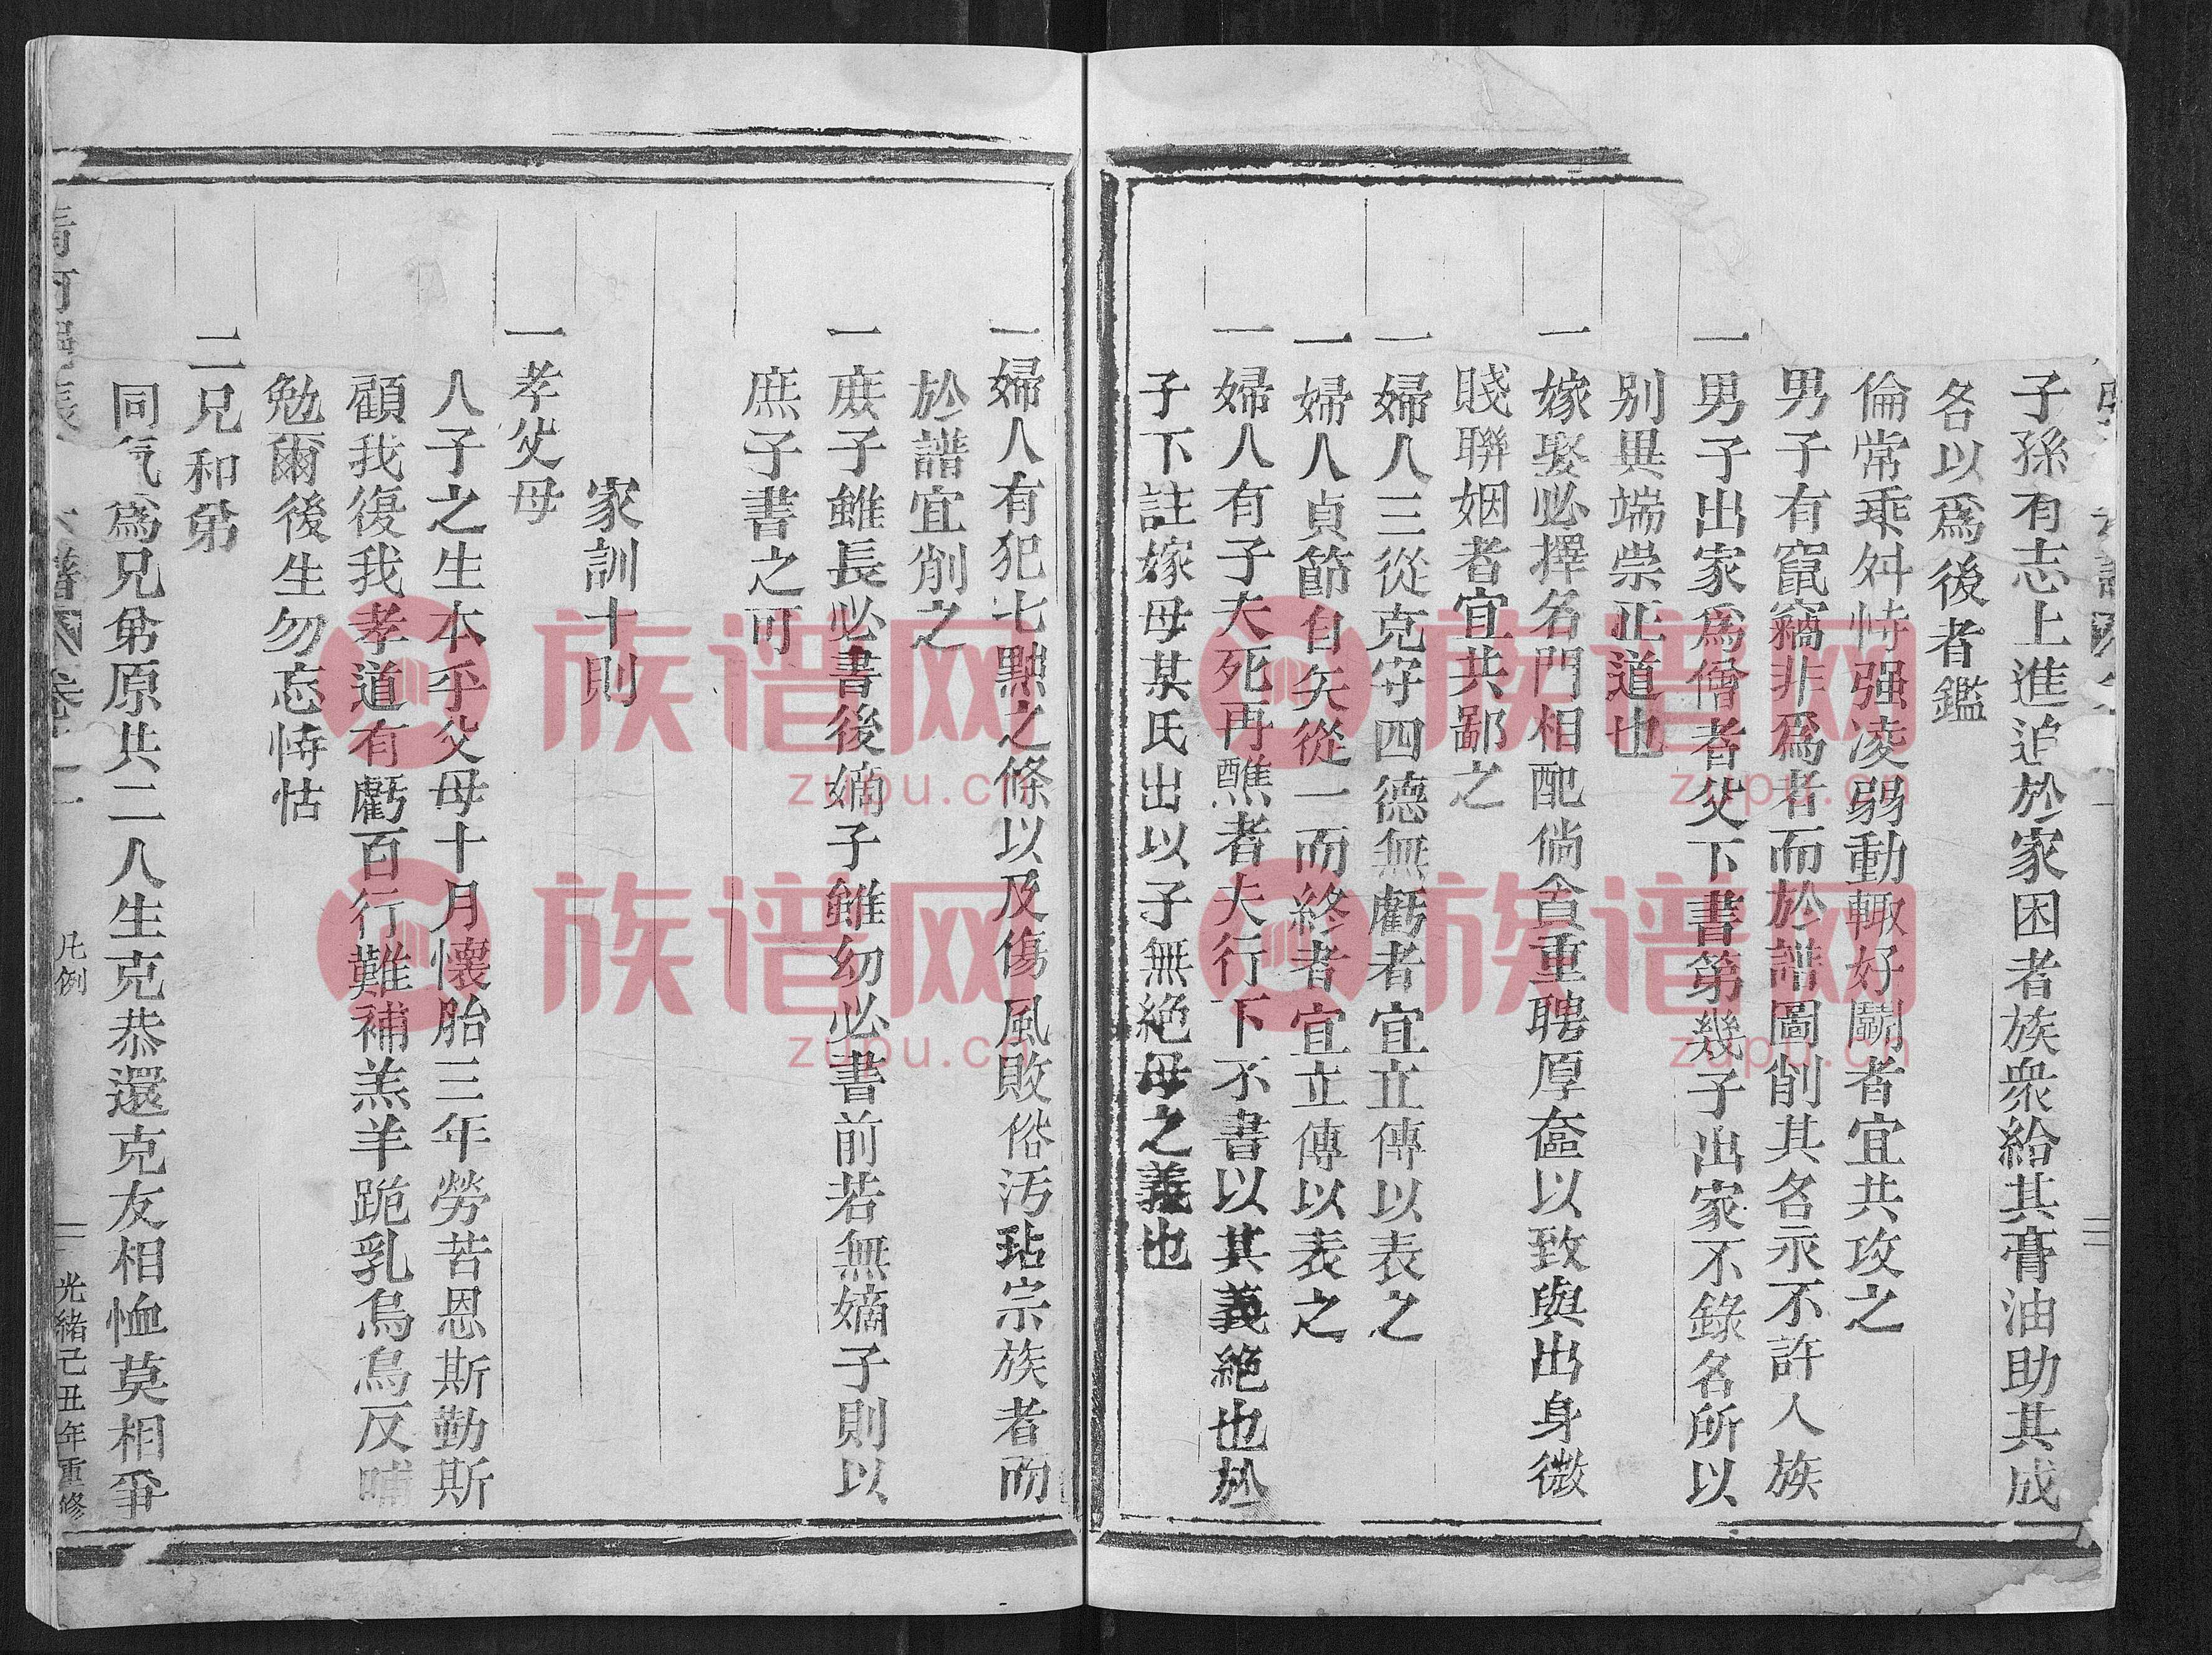 子孫有志上進迫於家困者族衆給其膏油助其成
各以爲後者鑑
倫常乘舛恃强凌弱動輙好鬬者宜共攻之
男子有竄竊非爲者而於譜圖削其名永不許人族
一男子出家爲僧者父下書第幾子出家不錄名所以
别異端崇正道也
一嫁娶必擇名門相配倘貪重聘厚奩以致與出身微
賤聯姻者宜共鄙之
一婦人三從克守四德無虧者宜立傳以表之
一婦人貞節自矢從一而終者宜立傳以表之
一婦人有子夫死再醮者夫行下不書以其義絕也於
子下註嫁母某氏出以子無絕母之義也
一婦人有犯七黜之條以及傷風敗俗汚玷宗族者而
於譜宜削之
一庶子雖長必書後嫡子雖幼必書前若無嫡子則以
庶子書之可
家訓十則
一孝父母
人子之生本乎父母十月懷胎三年勞苦恩斯勤斯
顧我復我孝道有虧百行難補羔羊跪乳烏鳥反哺
勉爾後生勿忘恃怙
二兄和弟
同氣爲兄弟原共二人生克恭還克友相恤莫相爭
凡例
二
光緒己丑年重修
族谱网
zupu.cn
族谱网
zupu.cn
族谱网
zupu.cn
族谱网
zupu.cn